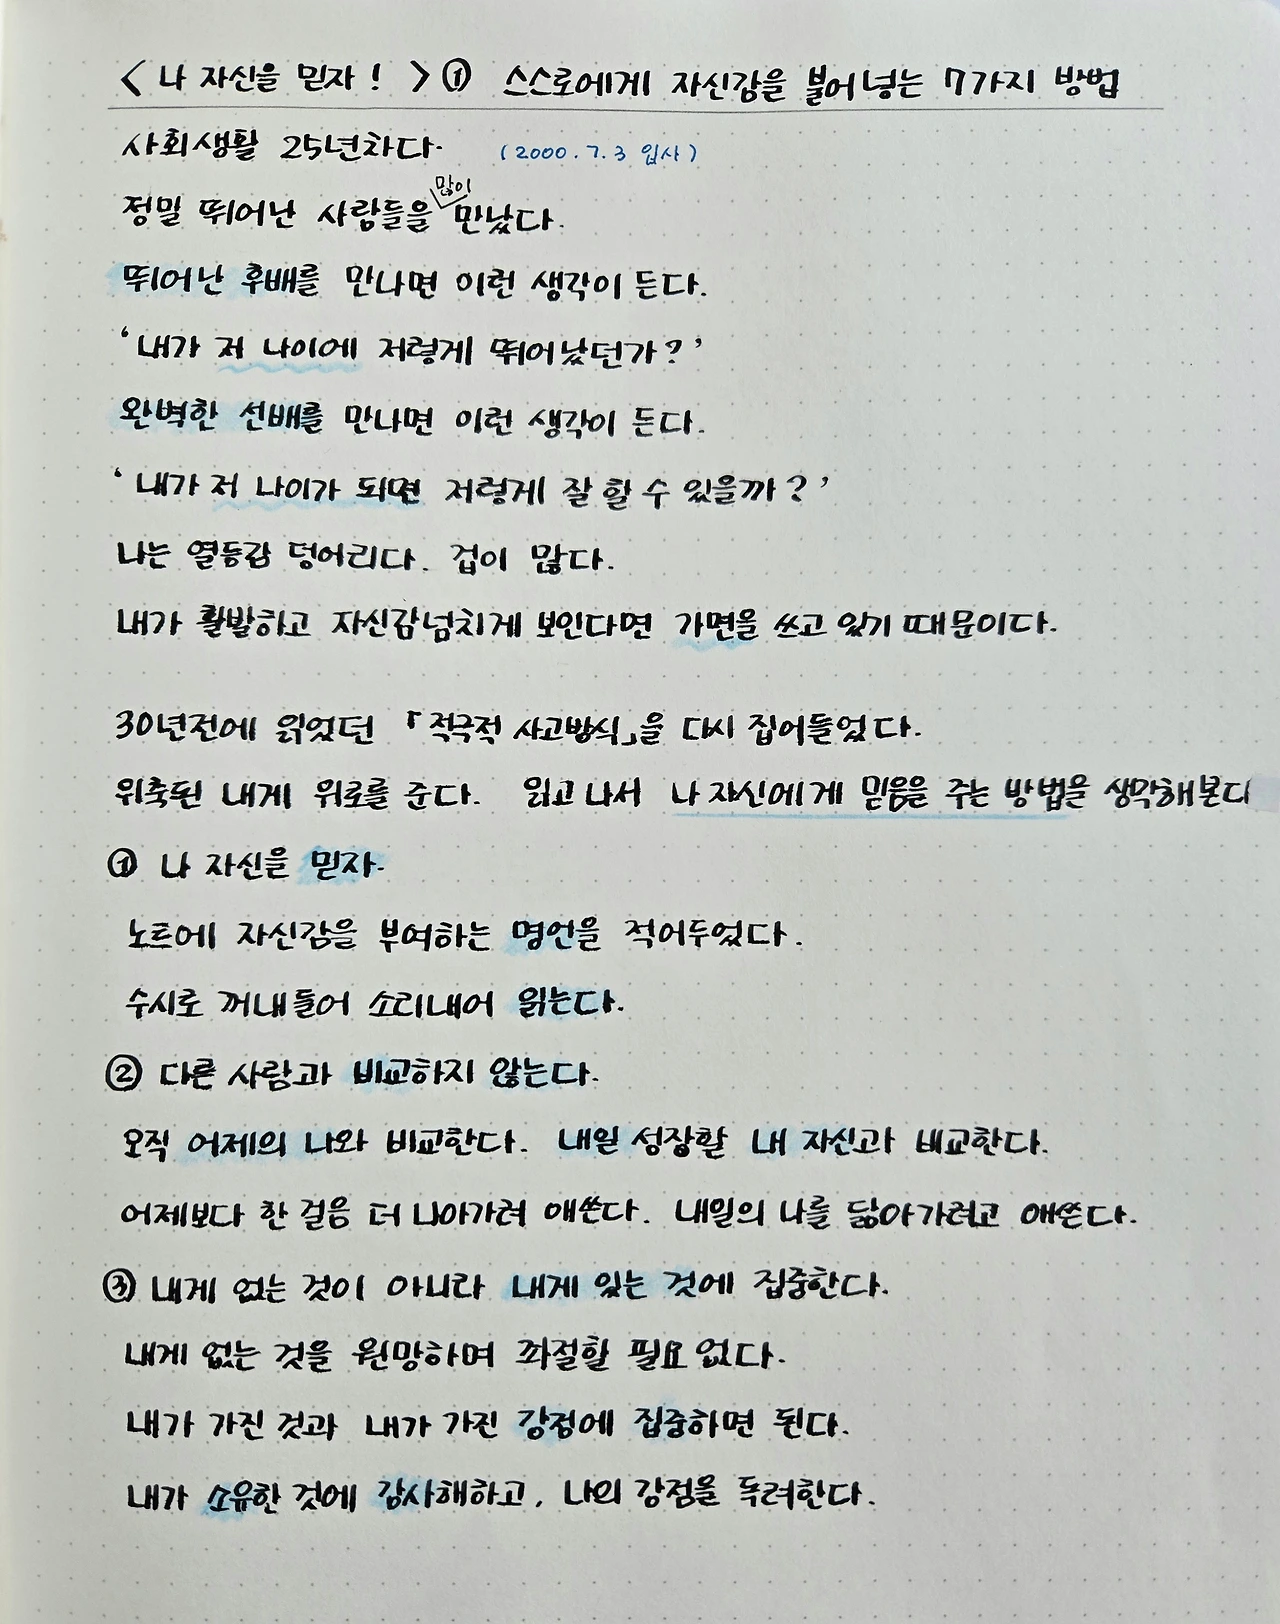 < 나 자신을 믿자! > ① 스스로에게 자신감을 불어넣는 7가지 방법
사회생활 25년차다. (2000.7.3 입사)
정밀 뛰어난 사람들을 많이 만났다.
뛰어난 후배를 만나면 이런 생각이 든다.
'내가 저 나이에 저렇게 뛰어났던가?'
완벽한 선배를 만나면 이런 생각이 든다.
'내가 저 나이가 되면 저렇게 잘 할 수 있을까?'
나는 열등감 덩어리다. 겁이 많다.
내가 활발하고 자신감넘치게 보인다면 가면을 쓰고 있기 때문이다.
30년전에 읽었던 「적극적 사고방식」을 다시 집어들었다.
위축된 내게 위로를 준다. 읽고 나서 나 자신에게 믿음을 주는 방법을 생각해본다
① 나 자신을 믿자.
노트에 자신감을 부여하는 명언을 적어두었다.
수시로 꺼내들어 소리내어 읽는다.
② 다른 사람과 비교하지 않는다.
오직 어제의 나와 비교한다. 내일 성장할 내 자신과 비교한다.
어제보다 한 걸음 더 나아가려 애쓴다. 내일의 나를 닮아가려고 애쓴다.
③ 내게 없는 것이 아니라 내게 있는 것에 집중한다.
내게 없는 것을 원망하며 좌절할 필요없다.
내가 가진 것과 내가 가진 강점에 집중하면 된다.
내가 소유한 것에 감사해하고, 나의 강점을 독려한다.